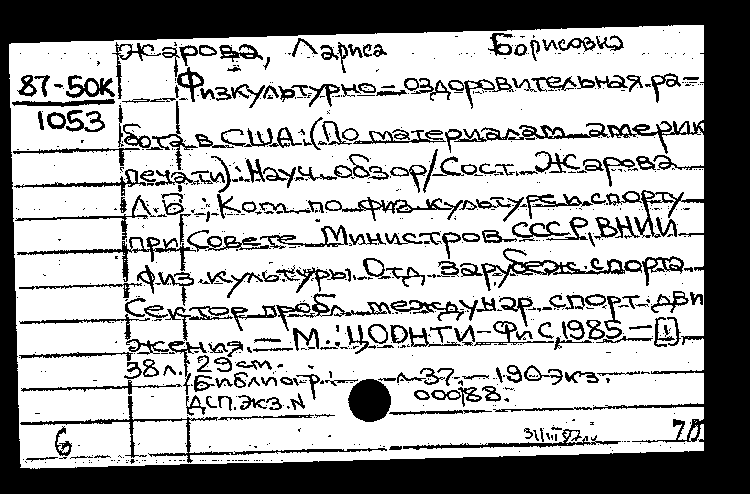 Жарова, Лариса Борисовна
87-50К
1053
Физкультурно-оздоровительная ра-
бота в США: (По материалам америк
печати): Науч. обзор/Сост. Жарова
Л.Б.; Ком. по физ. культуре и спорту
при Совете Министров СССР, ВНИИ
физ. культуры. Отд. зарубеж. спорта.
Сектор пробл. междунар. спорт. дви
жения. — М.: ЦООНТИ-ФиС, 1985. — [1],
38 л.; 29 см.
Библиогр.: л. 37. — 190 экз.
ДСП. Экз. N 00088.
6